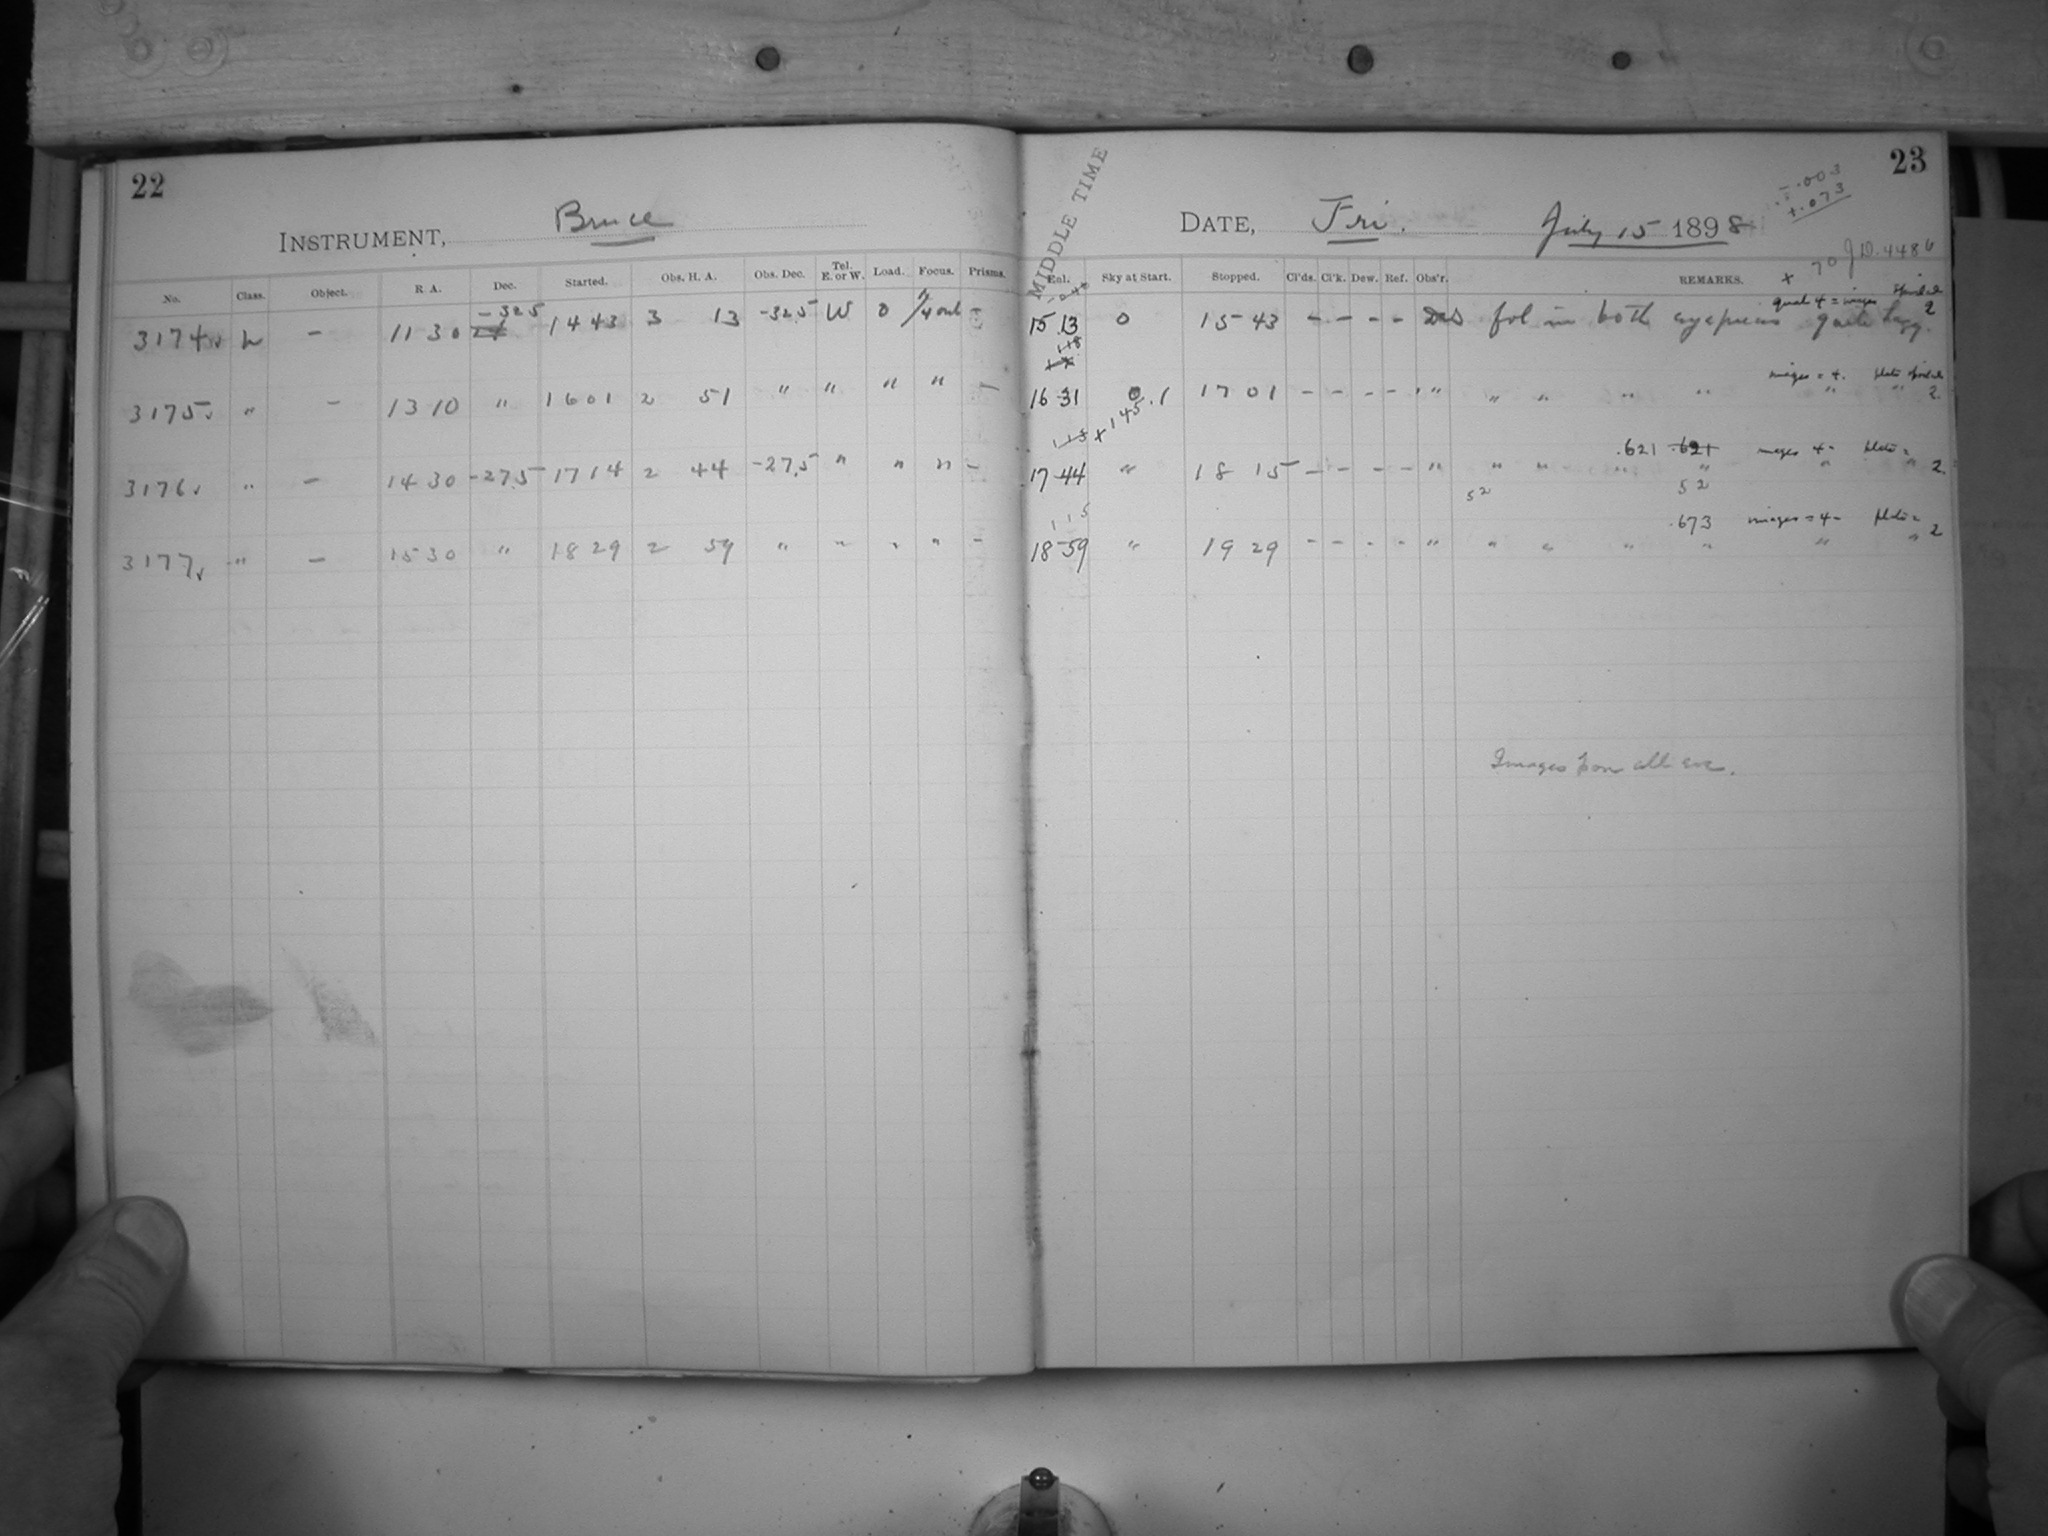 22
INSTRUMENT, Bruce
No. Class. Object. R. A. Dec. Started. Obs. H. A. Obs. Dec. Tel. E. or W. Load. Focus. Prisms.
3174 L - 11 30 -32.5 14 43 3 13 -32.5 W 0 1/4 out -
3175 " - 13 10 " 16 01 2 51 " " " " -
3176 " - 14 30 -27.5 17 14 2 44 -27.5 " " " -
3177 " - 15 30 " 18 29 2 59 " " " " -
23
MIDDLE TIME
-.003
+.073
DATE, Fri. July 15 1898
+ 70 J.D. 4486
Exl. Sky at Start. Stopped. Cl'ds. Cl'k. Dew. Ref. Obs'r. REMARKS.
images
15 13 0 15 43 - - - - fol in both eyepieces quite 2
118
images = 4. plate
16 31 0.1 17 01 - - - - " " " " " " " 2
115 +145
.621 .621 images 4- plate =
17 44 " 18 15 - - - - " " " " " " " 2
52 52
115
.673 images = 4- plate =
18 59 " 19 29 - - - - " " " " " " " 2
Images poor all eve.